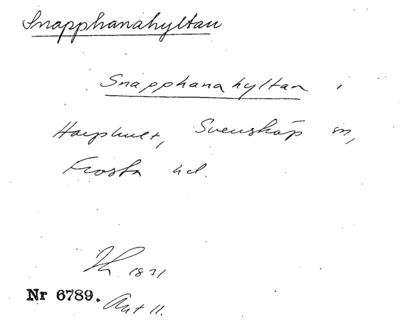 Snapphanahyltan
Snapphanahyltan i
Harphult, Svensköp sn,
Frosta hd.
1871
Nr 6789. Akt 11.